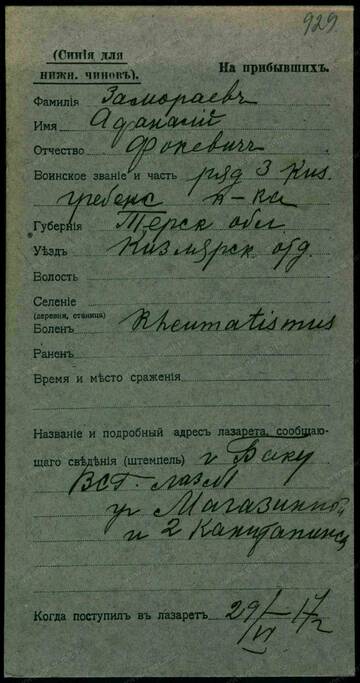 929.
(Синія для
нижн. чиновъ).
На прибывшихъ.
Фамилія Замораевъ
Имя Афанасій
Отчество Фокевичъ
Воинское званіе и часть ряд 3 Киз.
гребенс к-ка
Губернія Терск обл
Уѣздъ Кизлярск отд.
Волость
Селеніе
(деревня, станица)
Боленъ Rheumatismus
Раненъ
Время и мѣсто сраженія
Названіе и подробный адресъ лазарета, сообщаю-
щаго свѣдѣнія (штемпель) г Баку
лаз М
уг Магазинной
и 2 Канитапинск
Когда поступилъ въ лазаретъ 29/VI 17 г